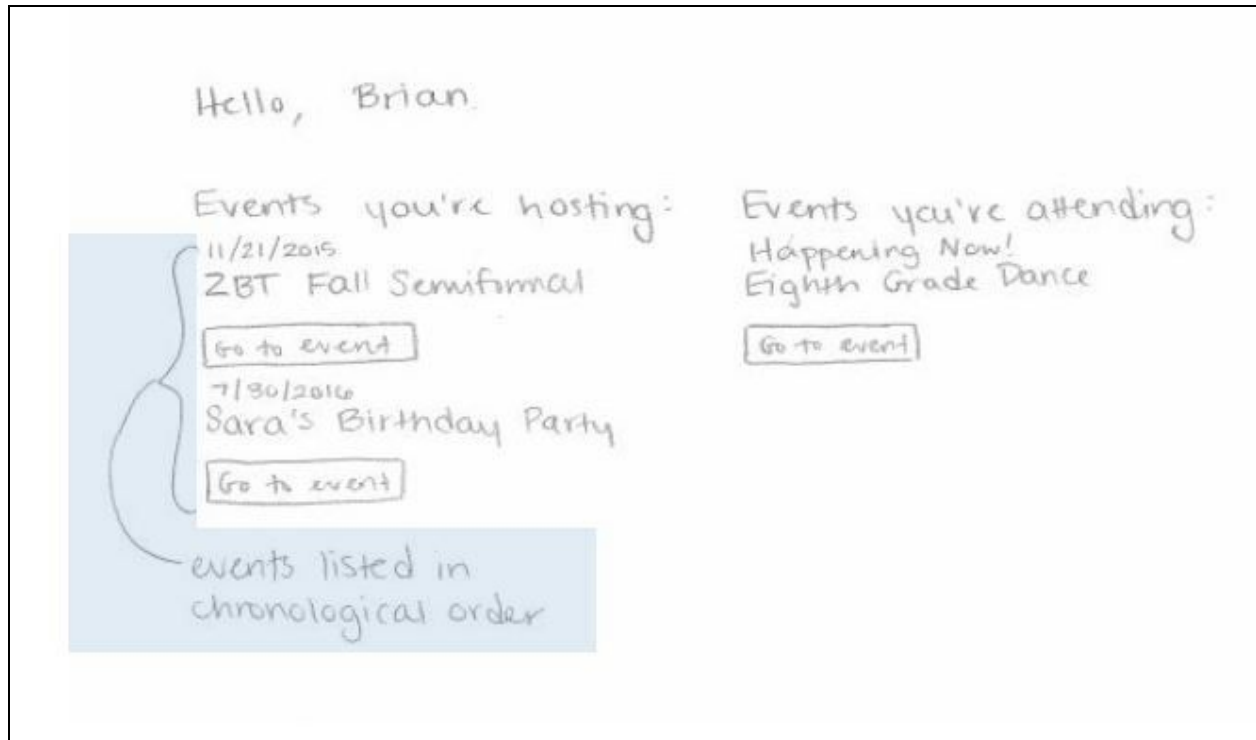 Hello, Brian.
Events you're hosting:
11/21/2015
ZBT Fall Semiformal
Go to event
7/30/2016
Sara's Birthday Party
Go to event
events listed in
chronological order
Events you're attending:
Happening Now!
Eighth Grade Dance
Go to event